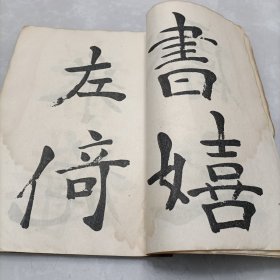 書嬉
左倚